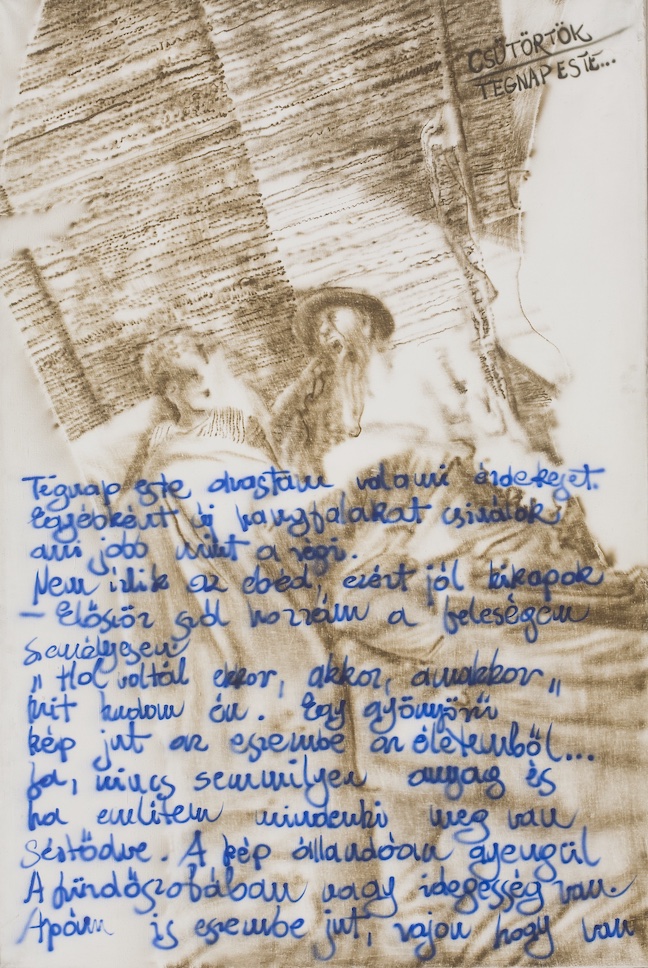 CSÜTÖRTÖK
TEGNAP ESTE...
Tegnap este olvastam valami érdekeset.
Egyébként új hangfalakat csinálok
ami jobb mint a régi.
Nem ízlik az ebéd, ezért jól kikapok
– Először szól hozzám a feleségem
személyesen
„Hol voltál ekkor, akkor, amakkor„
Mit tudom én. Egy gyönyörű
kép jut az eszembe az életemből...
Ja, nincs semmilyen anyag és
ha említem mindenki meg van
sértődve. A kép állandóan gyengül
A fürdőszobában nagy idegesség van.
Apám is eszembe jut, vajon hogy van